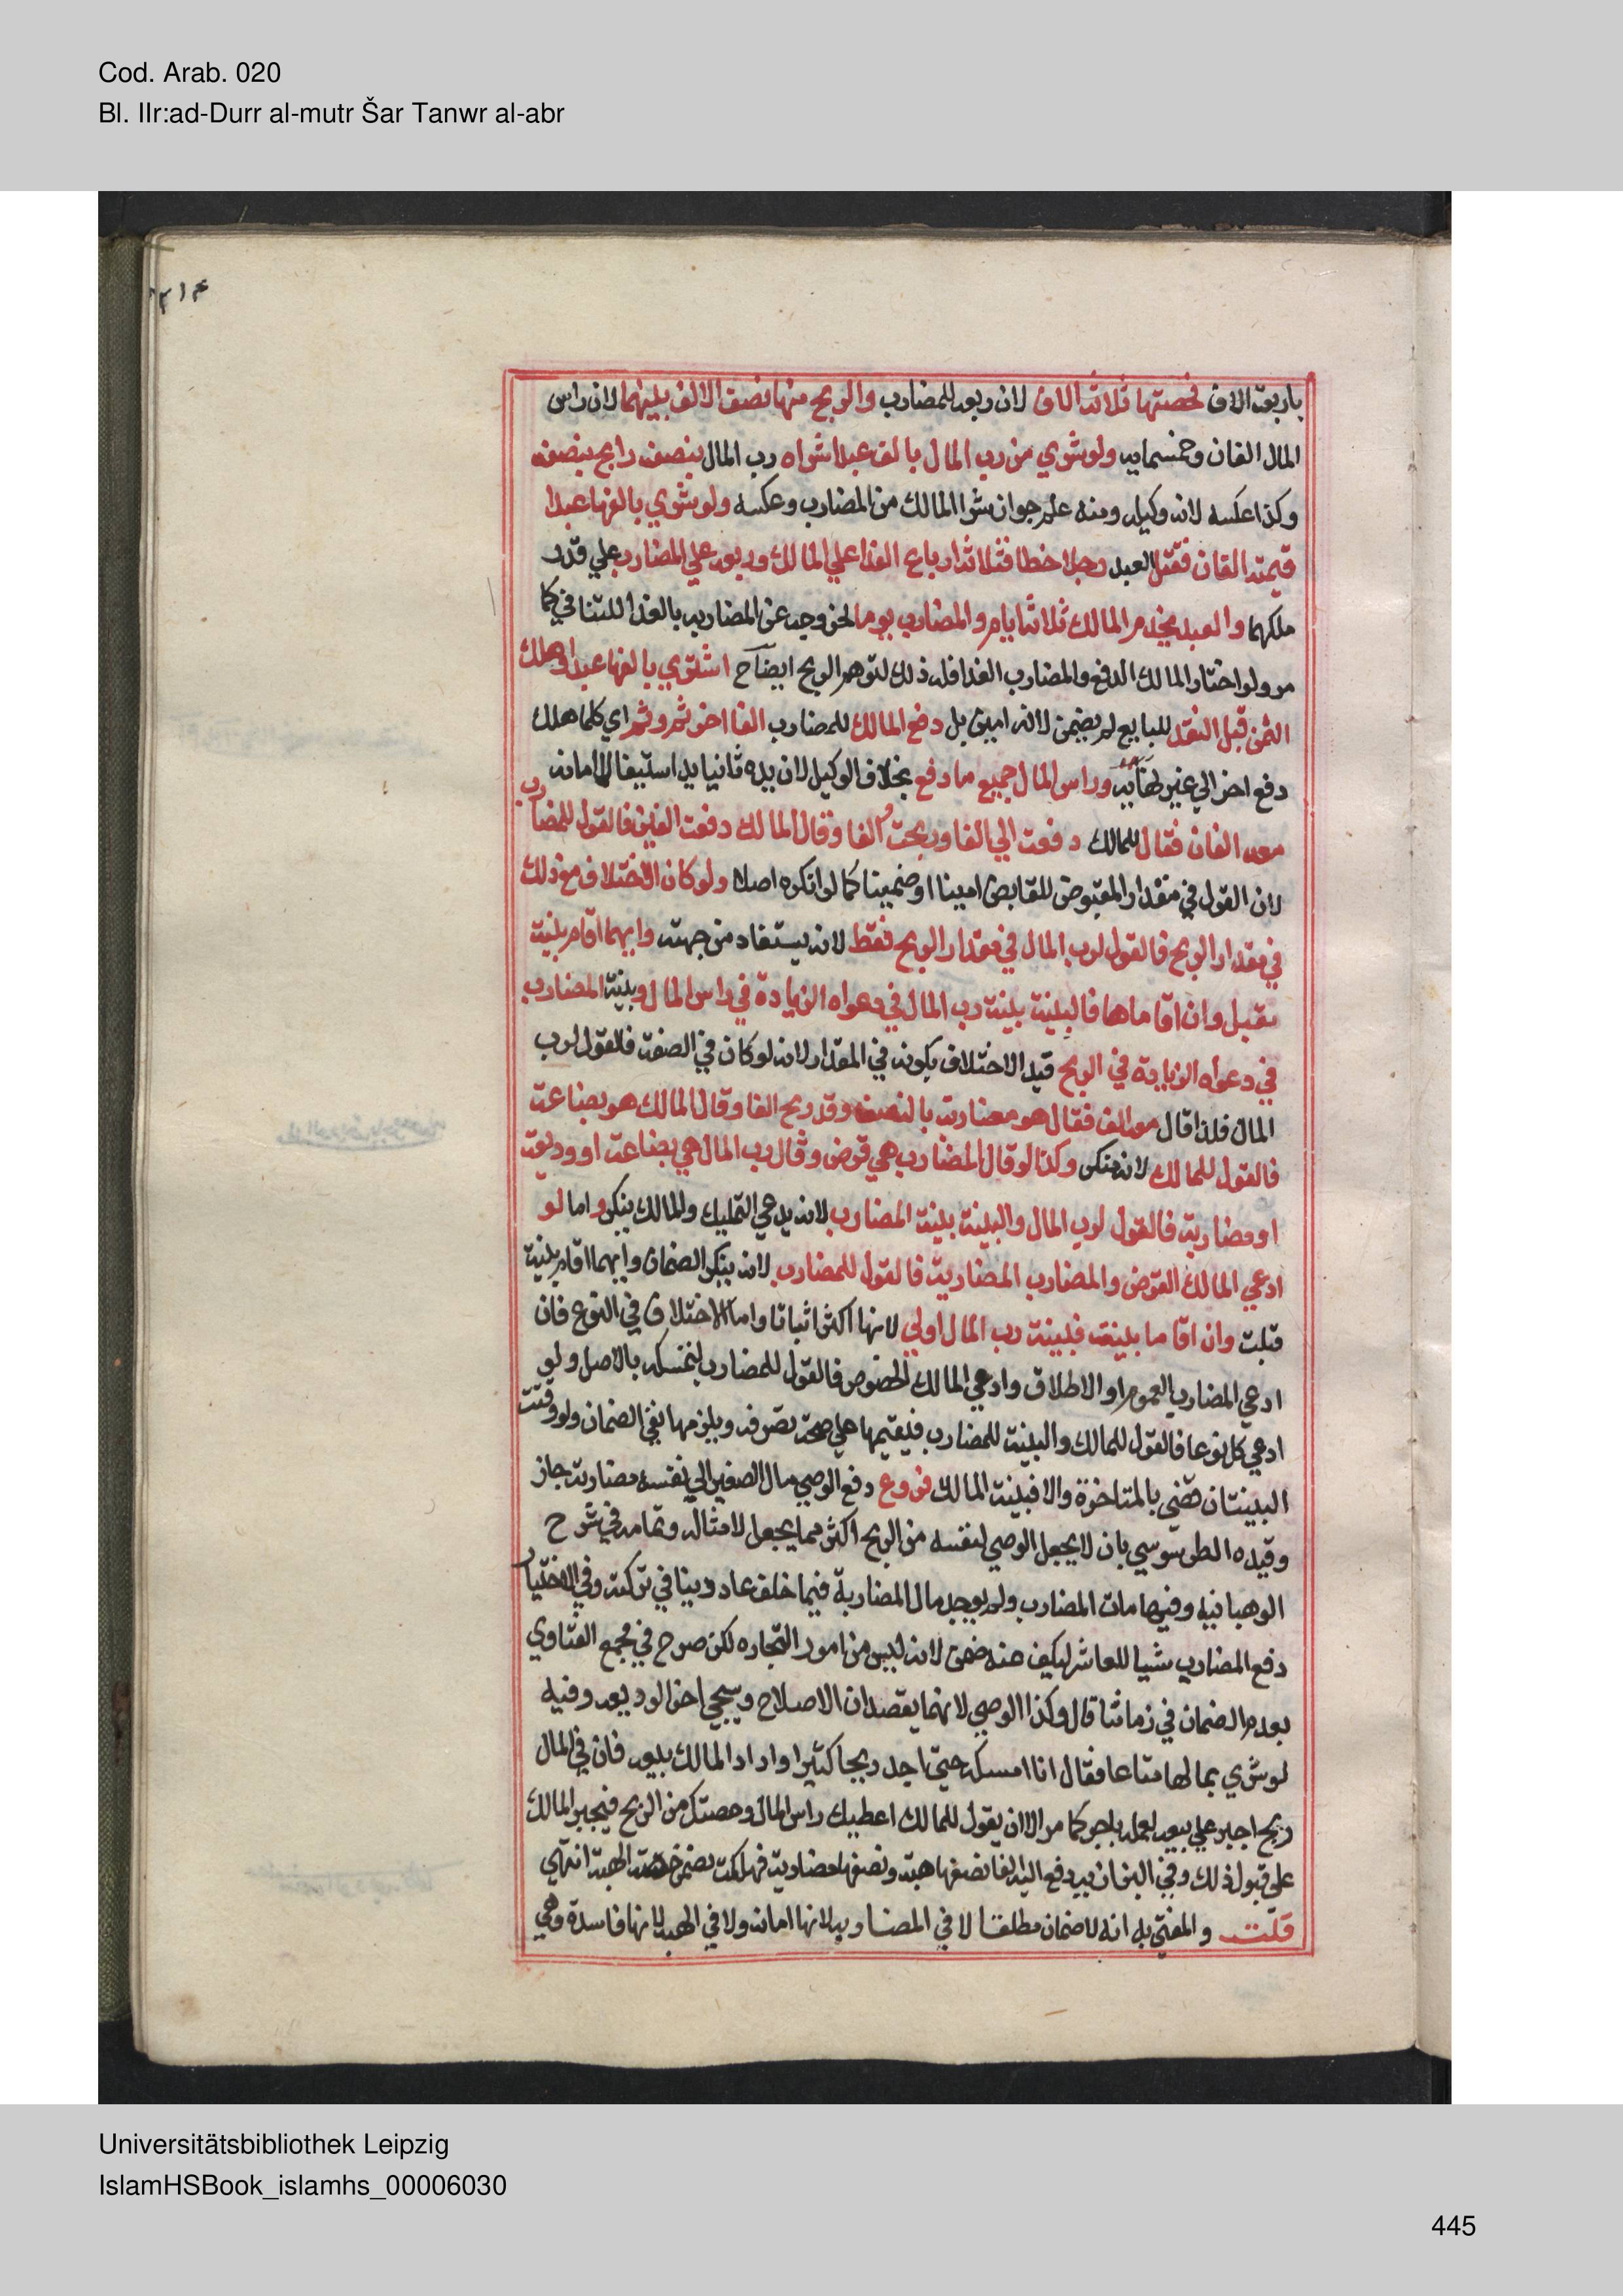 Cod. Arab. 020
Bl. IIr:ad-Durr al-mutr Šar Tanwr al-abr
باربعة الاف فحصتها ثلاثة الاف لان ربعه للمضارب والربح منها نصف الالف بينهما لان راس
المال الفان وخمسمايه ولو شري من رب المال بالف عبدا شراه رب المال بنصفه رابح بنصفه
وكذا عكسه لانه وكيله ومنه علم جواز شرا المالك من المضارب وعكسه ولو شري بالفها عبدا
قيمته الفان فقتل العبد رجلا خطا فثلاثة ارباع الفدا علي المالك وربعه علي المضارب علي قدر
ملكهما والعبد يخدم المالك ثلاثة ايام والمضارب يوما لخروجه عن المضاربه بالفدا للتنافي كما
مر ولو اختار المالك الدفع والمضارب الفدا فله ذلك لتوهم الربح ايضا ح اشتري بالفها عبدا وهلك
الثمن قبل النقد للبايع لم يضمن لانه امين بل دفع المالك للمضارب الفا اخر ثم وثم اي كلما هلك
دفع اخر الي غير نهايه وراس المال جميع ما دفع بخلاف الوكيل لان يده ثانيا يد استيفا لا امانه
معه الفان فقال للمالك دفعت الي الفا وربحت الفا وقال المالك دفعت الفين فالقول للمضارب
لان القول في مقدار المقبوض للقابض امينا او ضمينا كما لو انكره اصلا ولو كان الاختلاف مع ذلك
في مقدار الربح فالقول لرب المال في مقدار الربح فقط لانه يستفاد من جهته وايهما اقام بينة
تقبل وان اقاماها فالبينة بينة رب المال في دعواه الزيادة في راس المال وبينة المضارب
في دعواه الزيادة في الربح قيد الاختلاف بكونه في المقدار لانه لو كان في الصفة فالقول لرب
المال فلذا قال معه الف فقال هو مضاربة بالنصف وقد ربح الفا وقال المالك هو بضاعة
فالقول للمالك لانه منكر وكذا لو قال المضارب هي قرض وقال رب المال هي بضاعة او وديعة
او مضاربة فالقول لرب المال والبينة بينة المضارب لانه يدعي التمليك والمالك ينكر واما لو
ادعي المالك القرض والمضارب المضاربة فالقول للمضارب لانه ينكر الضمان وايهما اقام بينة
قبلت وان اقاما بينة فبينة رب المال اولي لانها اكثر اثباتا واما الاختلاف في النوع فان
ادعي المضارب العموم او الاطلاق وادعي المالك الخصوص فالقول للمضارب لتمسكه بالاصل ولو
ادعي كل نوعا فالقول للمالك والبينة للمضارب فيقيمها علي صحة تصرفه ويلزمها نفي الضمان ولو وقتت
البينتان قضي بالمتاخرة والا فبينة المالك فروع دفع الوصي مال الصغير الي نفسه مضاربة جاز
وقيده الطرسوسي بان لا يجعل الوصي لنفسه من الربح اكثر مما يجعل لامثاله وتمامه في شرح
الوهبانيه وفيها مات المضارب ولم يوجد مال المضاربة فيما خلف عاد دينا في تركته وفي الاختيار
دفع المضارب شيا للعاشر ليكف عنه ضمن لانه ليس من امور التجاره لكن صرح في مجمع الفتاوي
بعدم الضمان في زماننا قال وكذا الوصي لانهما يقصدان الاصلاح وسيجي اخر الوديعه وفيه
لو شري بمالها متاعا فقال انا امسكه حتي اجد ربحا كثيرا واراد المالك بيعه فان في المال
ربح اجبر علي بيعه لعمله باجر كما مر الا ان يقول للمالك اعطيك راس المال وحصتك من الربح فيجبر المالك
علي قبول ذلك وفي البزازيه دفع اليه الفا نصفها هبة ونصفها مضاربة فهلكت يضمن حصة الهبة انتهي
قلت والمفتي به انه لا ضمان مطلقا لا في المضاربه لانها امانه ولا في الهبه لانها فاسدة وهي
Universitätsbibliothek Leipzig
IslamHSBook_islamhs_00006030
445